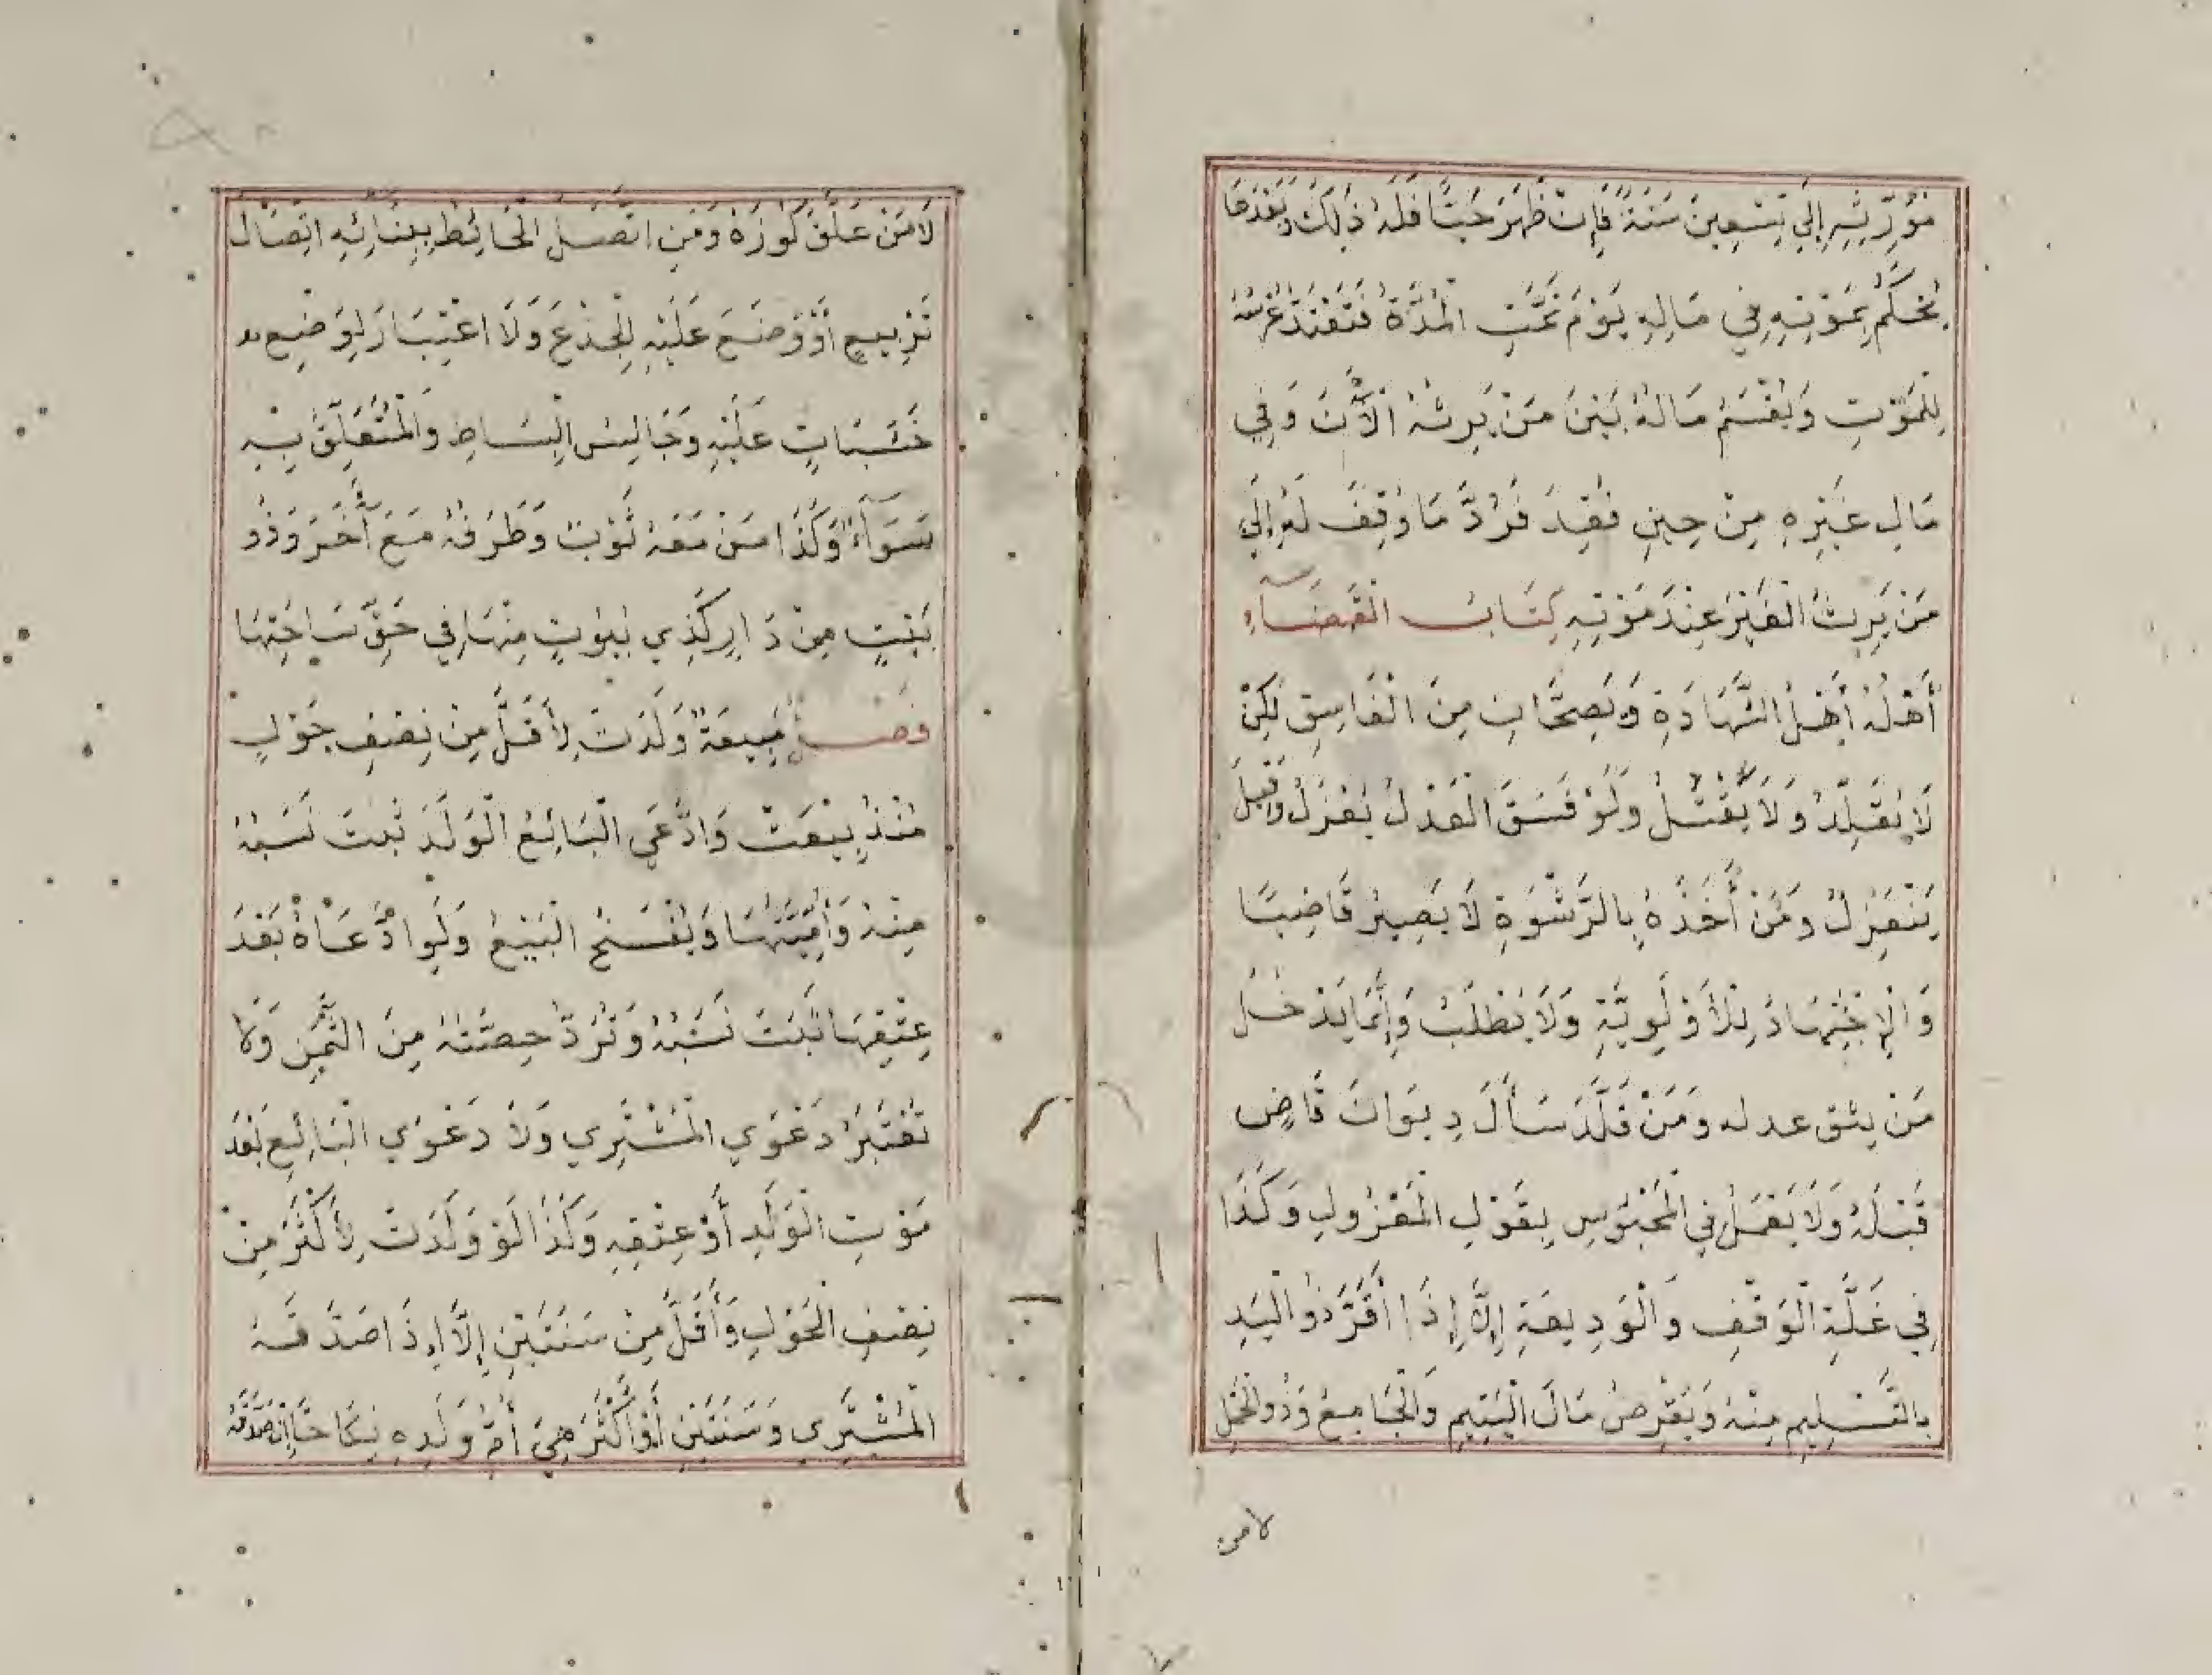 مُوَرِّثِهِ إِلَى تِسْعِينَ سَنَةً فَإِنْ ظَهَرَ حَيًّا فَلَهُ ذٰلِكَ وَبَعْدَهَا
يُحْكَمُ بِمَوْتِهِ فِي مَالِهِ يَوْمَ تَمَّتِ الْمُدَّةُ فَتَعْتَدُّ عِرْسُهُ
لِلْمَوْتِ وَيُقْسَمُ مَالُهُ بَيْنَ مَنْ يَرِثُهُ الْآنَ وَفِي
مَالِ غَيْرِهِ مِنْ حِينِ فُقِدَ فَرُدَّ مَا وُقِفَ لَهُ إِلَى
مَنْ يَرِثُ الْغَيْرَ عِنْدَ مَوْتِهِ كِتَابُ الْقَضَآءِ
أَهْلُهُ أَهْلُ الشَّهَادَةِ وَيَصِحَّانِ مِنَ الْفَاسِقِ لٰكِنْ
لَا يُقَلَّدُ وَلَا يُقْبَلُ وَلَوْ فَسَقَ الْعَدْلُ يُعْزَلُ وَقِيلَ
يَنْعَزِلُ وَمَنْ أَخَذَهُ بِالرَّشْوَةِ لَا يَصِيرُ قَاضِيًا
وَالْاِجْتِهَادُ لِلْأَوْلَوِيَّةِ وَلَا يُطْلَبُ وَإِنَّمَا يَدْخُلُ
مَنْ يثق عدله وَمَنْ قُلِّدَ سَأَلَ دِيوَانَ قَاضٍ
قَبْلَهُ وَلَا يَعْمَلُ فِي الْمَحْبُوسِ بِقَوْلِ الْمَعْزُولِ وَكَذَا
فِي غَلَّةِ الْوَقْفِ وَالْوَدِيعَةِ إِلَّا إِذَا أَقَرَّ ذُو الْيَدِ
بِالتَّسْلِيمِ مِنْهُ وَيُقْرِضُ مَالَ الْيَتِيمِ وَالْجَامِعُ وَذُو الْحَمْلِ
لا من
لَا مَنْ عَلَّقَ كُوزَهُ وَمَنِ اتَّصَلَ الْحَائِطُ بِبِنَائِهِ اتِّصَالَ
تَرْبِيعٍ أَوْ وَضَعَ عَلَيْهِ الْجِذْعَ وَلَا اعْتِبَارَ لِوَضْعِ
خَشَبَاتٍ عَلَيْهِ وَجَالِسُ الْبِسَاطِ وَالْمُتَعَلِّقُ بِهِ
سَوَآءٌ وَكَذَا مَنْ مَعَهُ ثَوْبٌ وَطَرَفُهُ مَعَ آخَرَ وَذُو
بَيْتٍ مِنْ دَارٍ كَذِي بُيُوتٍ مِنْهَا فِي حَقِّ سَاحَتِهَا
فَصْلٌ مَبِيعَةٌ وَلَدَتْ لِأَقَلَّ مِنْ نِصْفِ حَوْلٍ
مُنْذُ بِيعَتْ وَادَّعَى الْبَائِعُ الْوَلَدَ ثَبَتَ نَسَبُهُ
مِنْهُ وَأُمِّيَّتُهَا وَيُفْسَخُ الْبَيْعُ وَلَوِ ادَّعَاهُ بَعْدَ
عِتْقِهَا ثَبَتَ نَسَبُهُ وَتُرَدُّ حِصَّتُهُ مِنَ الثَّمَنِ وَلَا
تُعْتَبَرُ دَعْوَى الْمُشْتَرِي وَلَا دَعْوَى الْبَائِعِ بَعْدَ
مَوْتِ الْوَلَدِ أَوْ عِتْقِهِ وَكَذَا لَوْ وَلَدَتْ لِأَكْثَرَ مِنْ
نِصْفِ الْحَوْلِ وَأَقَلَّ مِنْ سَنَتَيْنِ إِلَّا إِذَا صَدَّقَهُ
الْمُشْتَرِي وَسَنَتَيْنِ أَوْ أَكْثَرَ هِيَ أُمُّ وَلَدِهِ نِكَاحًا إِنْ صَدَّقَهُ